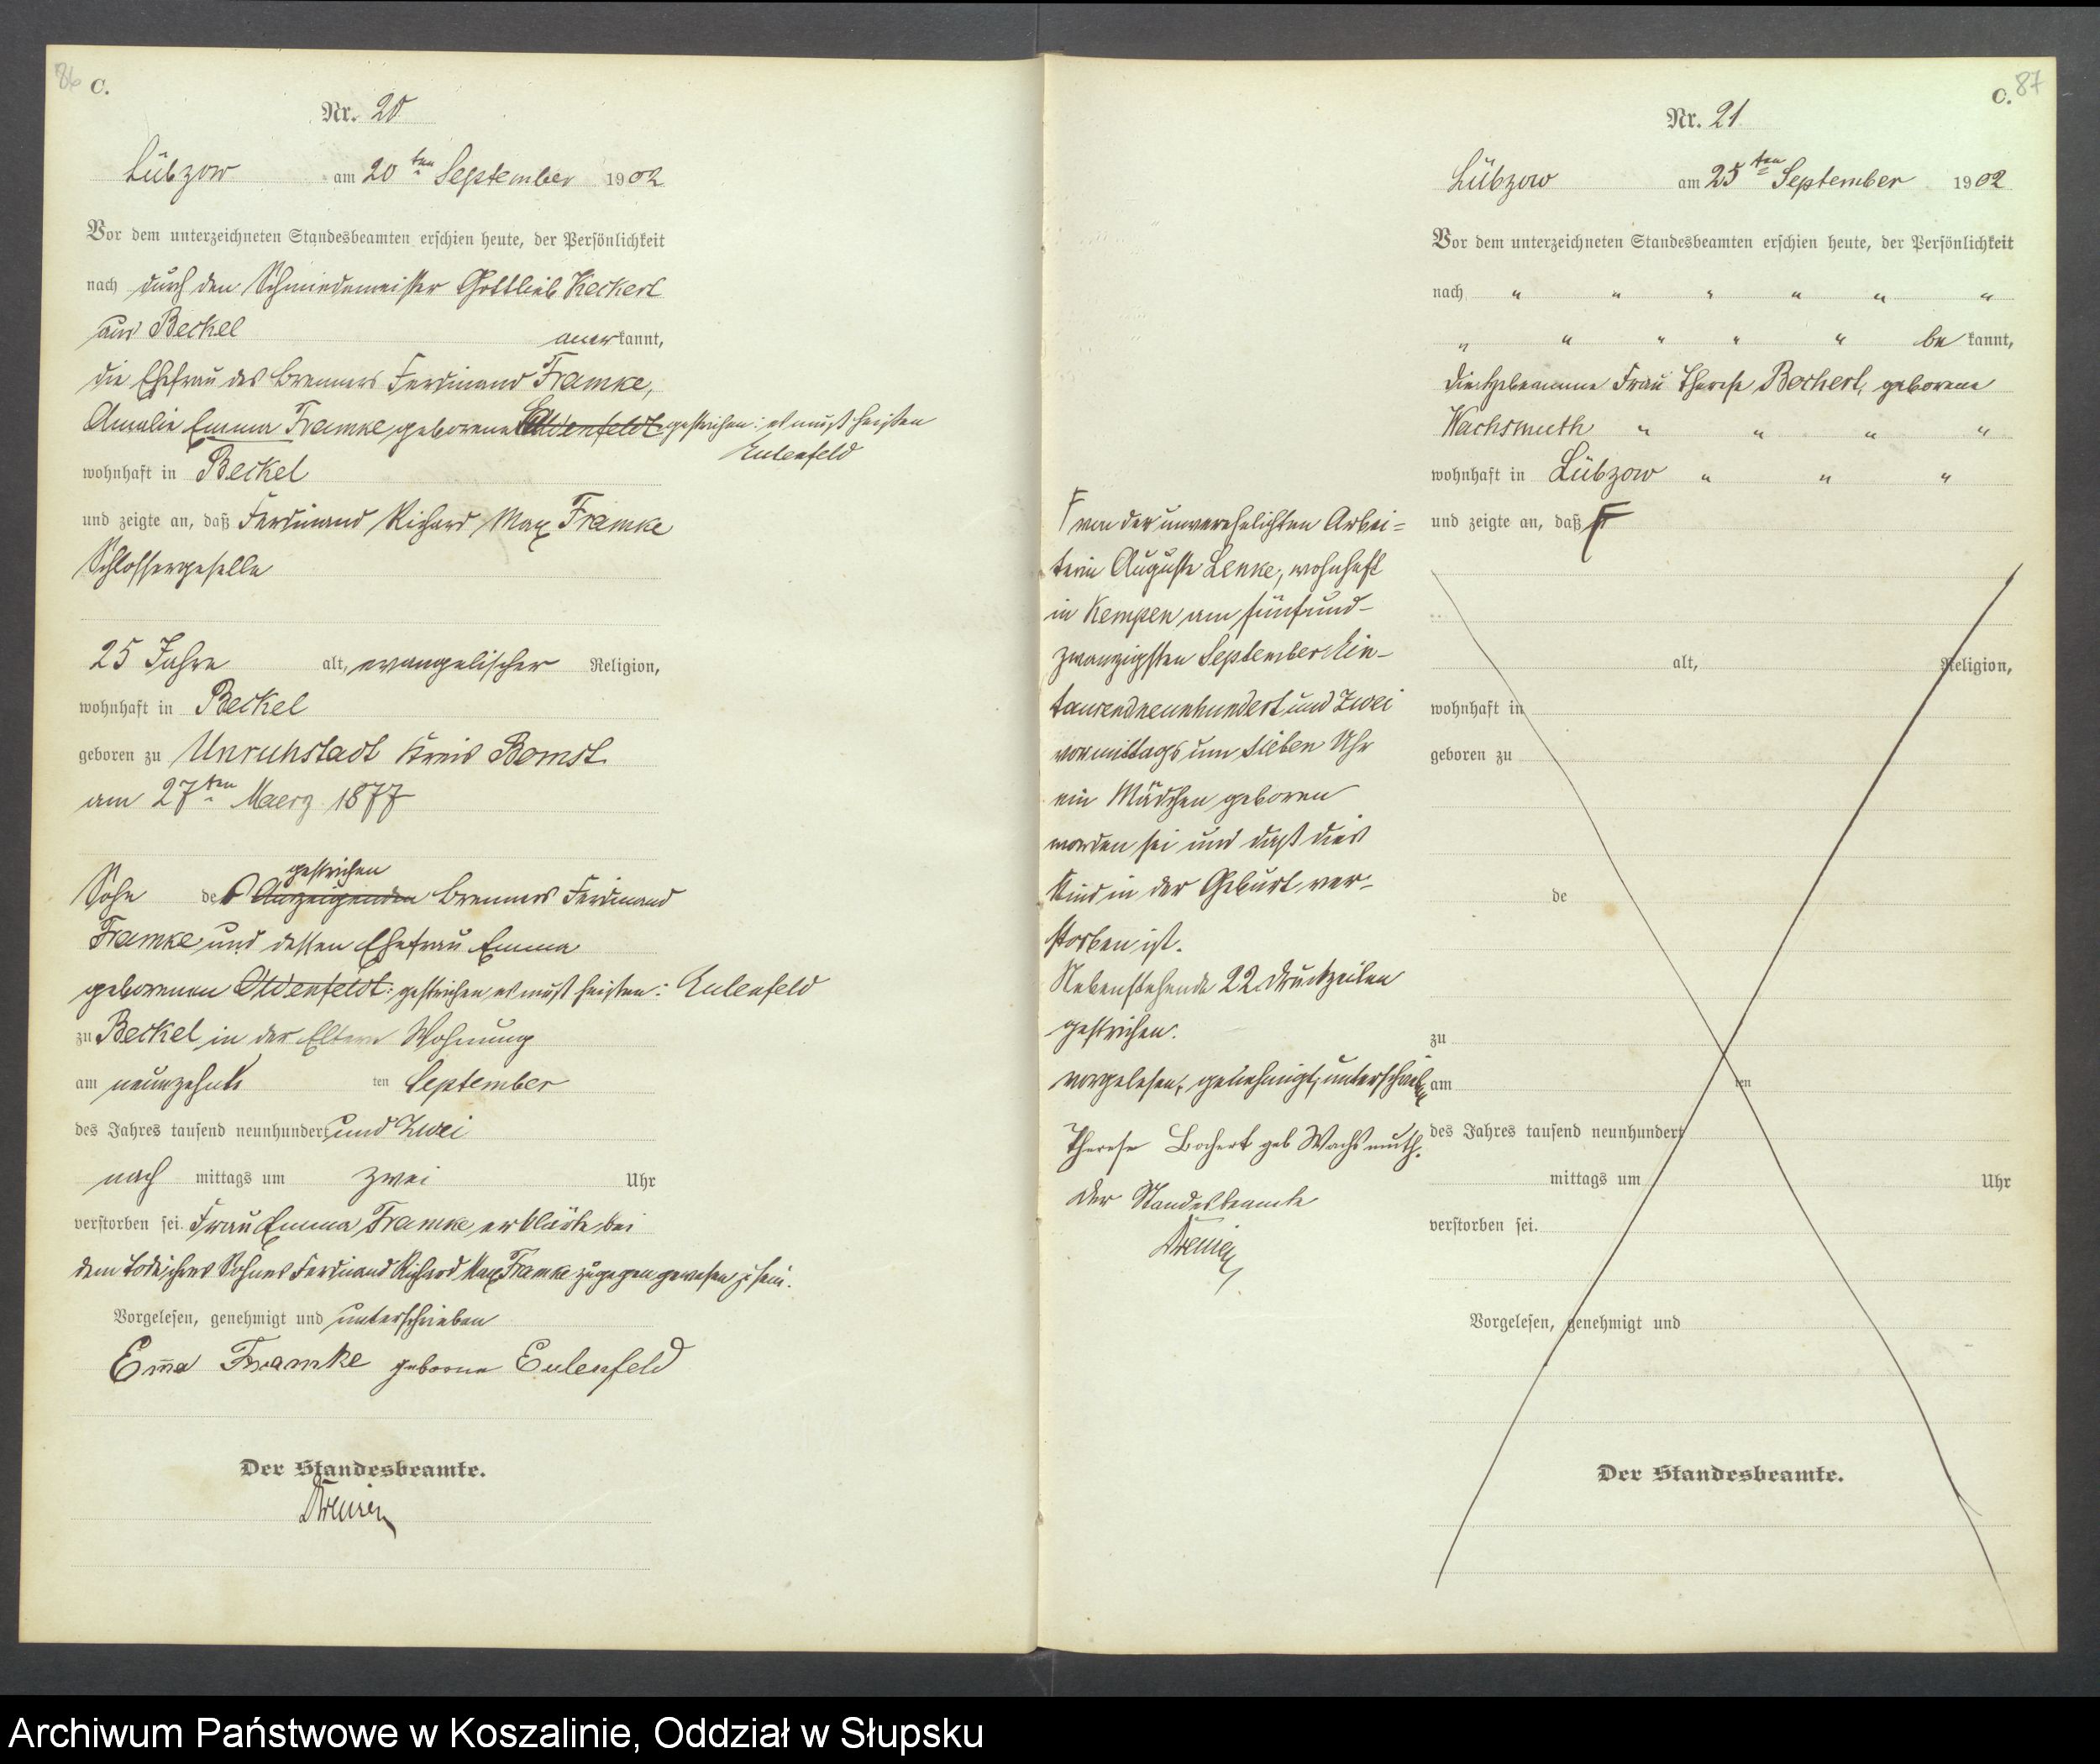 86 C.
Nr. 20
Lübzow am 20ten September 1902
Vor dem unterzeichneten Standesbeamten erschien heute, der Persönlichkeit
nach durch den Schmiedemeister Gottlieb Keckert
aus Beckel anerkannt,
die Ehefrau des Brenners Ferdinand Framke,
Amalie Emma Framke geborene gestrichen: es muß heißen
Eulenfeld
wohnhaft in Beckel
und zeigte an, daß Ferdinand Richard Max Framke
Schlossergeselle
25 Jahre alt, evangelischer Religion,
wohnhaft in Beckel
geboren zu Unruhstadt Kreis Bomst
am 27ten Maerz 1877
gestrichen
Sohn des Anzeigenden Brenners Ferdinand
Framke und dessen Ehefrau Emma
geborenen Oldenfeldt: gestrichen, es muß heißen: Eulenfeld
zu Beckel in der Eltern Wohnung
am neunzehnten September
des Jahres tausend neunhundert und Zwei
nach mittags um zwei Uhr
verstorben sei. Frau Emma Framke erklärte bei
dem Tode ihres Sohnes Ferdinand Richard Max Framke zugegen gewesen zu sein.
Vorgelesen, genehmigt und unterschrieben
Em̅a Framke geborne Eulenfeld
Der Standesbeamte.
C. 87
Nr. 21
Lübzow am 25ten September 1902
Vor dem unterzeichneten Standesbeamten erschien heute, der Persönlichkeit
nach " " " " " "
" " " " " be kannt,
die Hebeamme Frau Therese Bochert, geborene
Wachsmuth " " " "
wohnhaft in Lübzow " " "
und zeigte an, daß F
F von der unverehelichten Arbei=
terin Auguste Lenke, wohnhaft
in Kempen am fünfund-
zwanzigsten September Ein-
tausendneunhundert und Zwei
vormittags um sieben Uhr
ein Mädchen geboren
worden sei und daß dies
Kind in der Geburt ver-
storben ist.
Nebenstehende 22 Druckzeilen
gestrichen.
vorgelesen, genehmigt, unterschrieben
Therese Bochert geb Wachsmuth.
Der Standesbeamte
alt, Religion,
wohnhaft in
geboren zu
de
zu
am ten
des Jahres tausend neunhundert
mittags um Uhr
verstorben sei.
Vorgelesen, genehmigt und
Der Standesbeamte.
Archiwum Państwowe w Koszalinie, Oddział w Słupsku